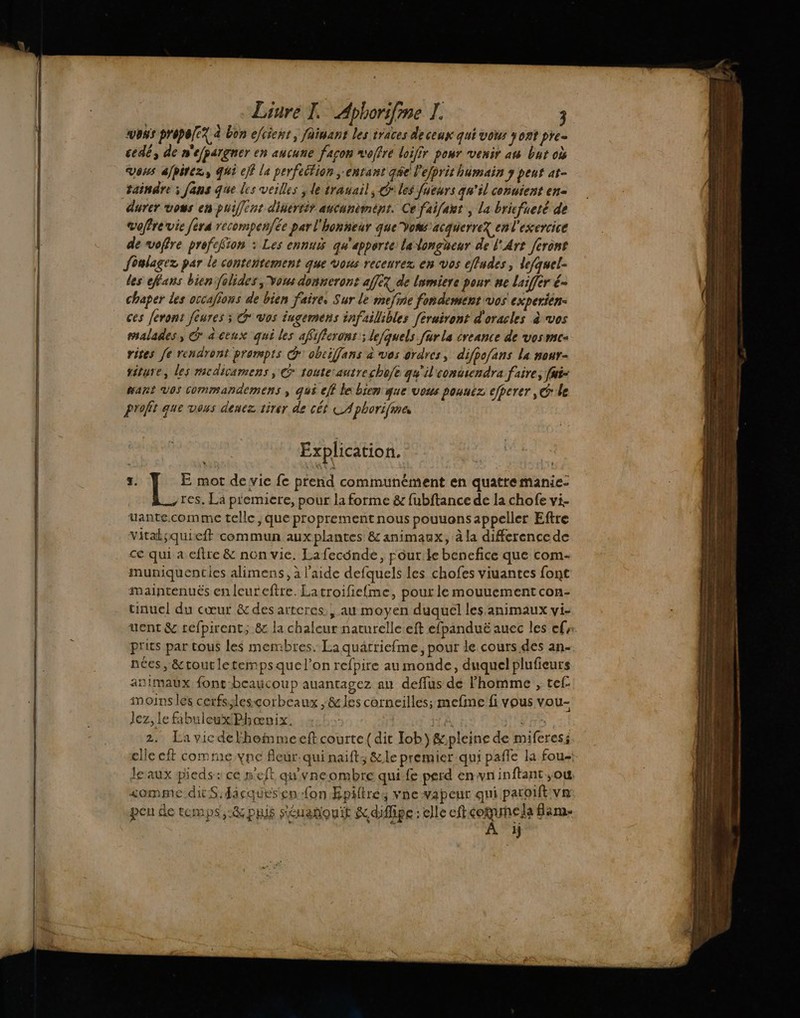 Liure I. Aphoriſme I. 3
vous propoſez à bon eſcient, ſuiuant les traces de ceux qui vous y ont pre-
cedé, de n'eſpargner en aucune façon voſtre loiſir pour venir au but où
vous aſpirez, qui eſt la perfection, entant que l'eſprit humain y peut at-
taindre; ſans que les veilles, le trauail, & les ſueurs qu'il conuient en-
durer vous en puiſſent diuertir aucunement. Ce faiſant, la briefueté de
voſtre vie ſera recompenſée par l'honneur que vous acquerrez en l'exercice
de voſtre profeſſion: Les ennuis qu'apporte la longueur de l'Art ſeront
ſoulagez par le contentement que vous receurez en vos eſtudes, leſquel-
les eſtans bien ſolides, vous donneront aſſez de lumiere pour ne laiſſer é-
chaper les occaſions de bien faire. Sur le meſme fondement vos experien-
ces ſeront ſeures; & vos iugemens infaillibles ſeruiront d'oracles à vos
malades, & à ceux qui les aſſiſterons; leſquels ſur la creance de vos me-
rites ſe rendront prompts & obeiſſans à vos ordres, diſpoſans la nour-
riture, les medicamens, & toute autre choſe qu'il conuiendra faire, ſui-
uant vos commandemens, qui eſt le bien que vous pouuez eſperer, & le
profit que vous deuez tirer de cét Aphoriſme.
Explication.
1. LE mot de vie ſe prend communément en quatre manie-
res. La premiere, pour la forme & ſubſtance de la choſe vi-
uante comme telle, que proprement nous pouuons appeller Eſtre
vital; qui eſt commun aux plantes & animaux, à la difference de
ce qui a eſtre & non vie. La ſeconde, pour le benefice que com-
muniquent les alimens, à l'aide deſquels les choſes viuantes ſont
maintenuës en leur eſtre. La troiſieſme, pour le mouuement con-
tinuel du cœur & des arteres, au moyen duquel les animaux vi-
uent & reſpirent; & la chaleur naturelle eſt eſpanduë auec les eſ-
prits par tous les membres. La quatrieſme, pour le cours des an-
nées, & tout le temps que l'on reſpire au monde, duquel pluſieurs
animaux ſont beaucoup auantagez au deſſus de l'homme, teſ-
moins les cerfs, les corbeaux, & les corneilles; meſme ſi vous vou-
lez, le fabuleux Phœnix.
2. La vie de l'homme eſt courte (dit Iob) & pleine de miſeres;
elle eſt comme vne fleur qui naiſt, & le premier qui paſſe la fou-
le aux pieds: ce n'eſt qu'vne ombre qui ſe perd en vn inſtant, ou
comme dit S. Iacques en ſon Epiſtre, vne vapeur qui paroiſt vn
peu de temps, & puis s'éuanouit & diſſipe: elle eſt comme la flam-
A ij